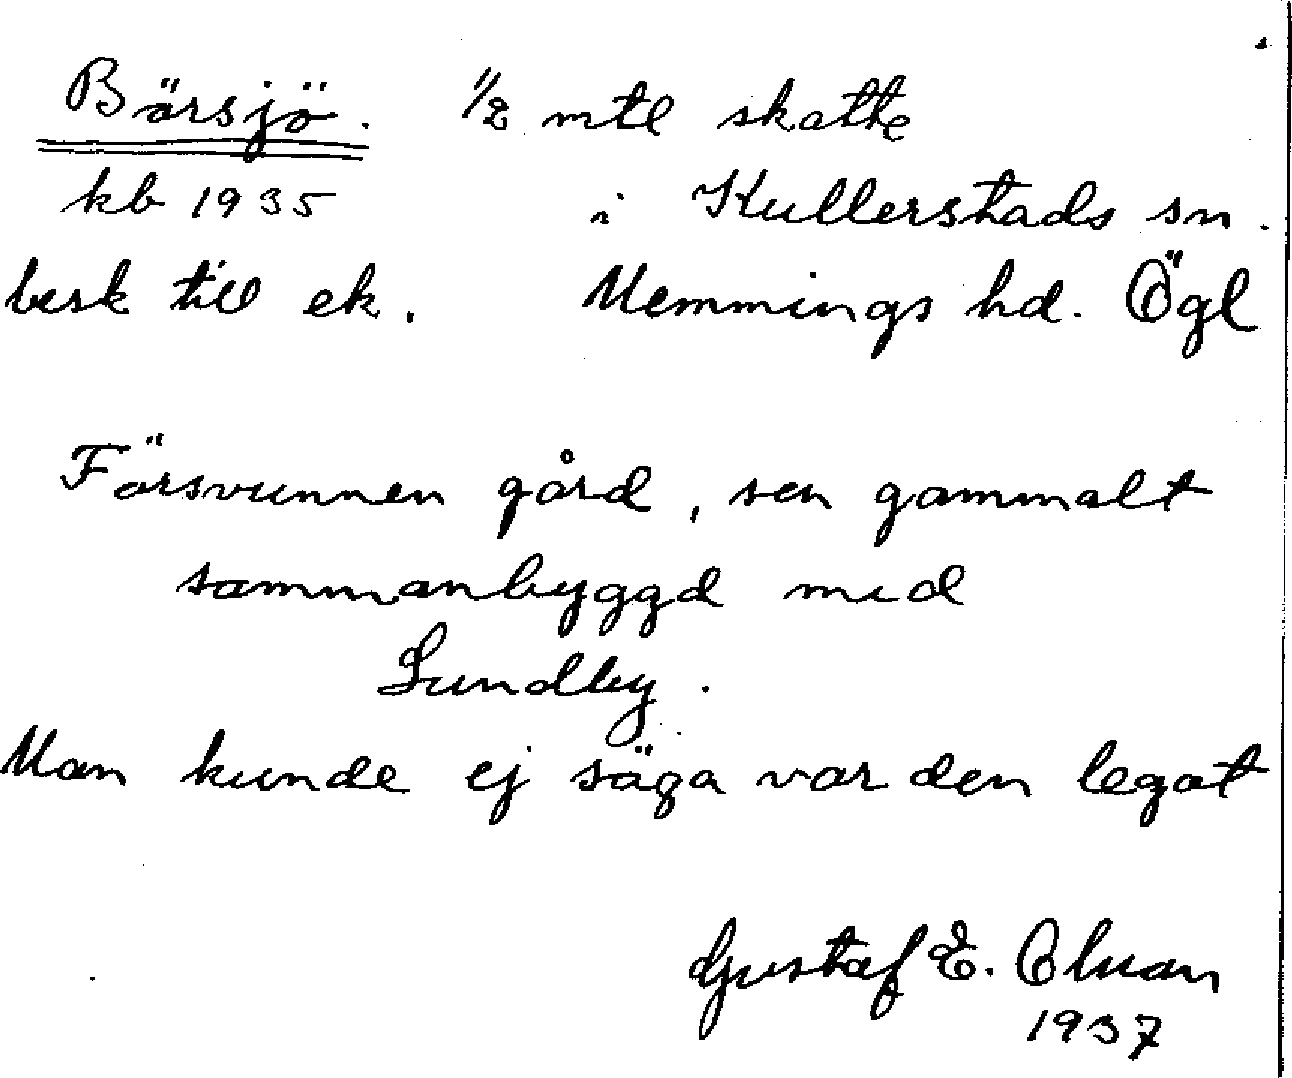 Bärsjö. 1/2 mtl skatte
kb 1935 i Kullerstads sn.
besk till ek. Memmings hd. Ögl
Försvunnen gård, sen gammalt
sammanbyggd med
Lundby.
Man kunde ej säga var den legat
Gustaf E. Olman
1937